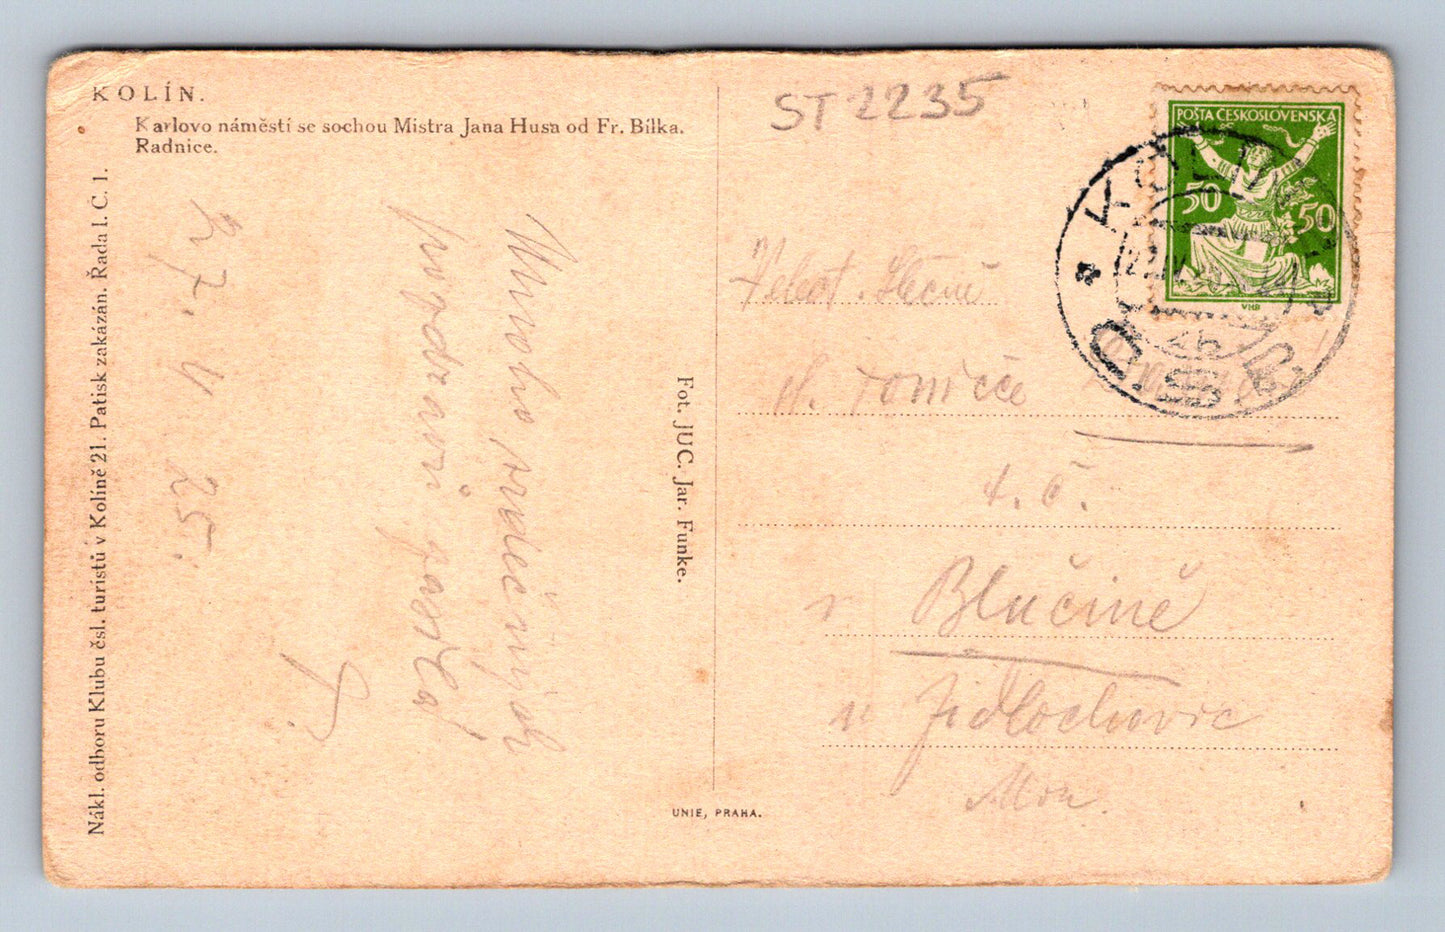 KOLÍN.
Karlovo náměstí se sochou Mistra Jana Husa od Fr. Bílka.
Radnice.
Nákl. odboru Klubu čsl. turistů v Kolíně 21. Patisk zakázán. Řada I. C. 1.
Fot. JUC. Jar. Funke.
UNIE, PRAHA.
ST 2235
POŠTA ČESKOSLOVENSKÁ
50 50
VHB
KOLÍN
V. 25.
Mnoho srdečných
pozdravů
Slečně
t. č.
Blučině
u Židlochovic
Mor.